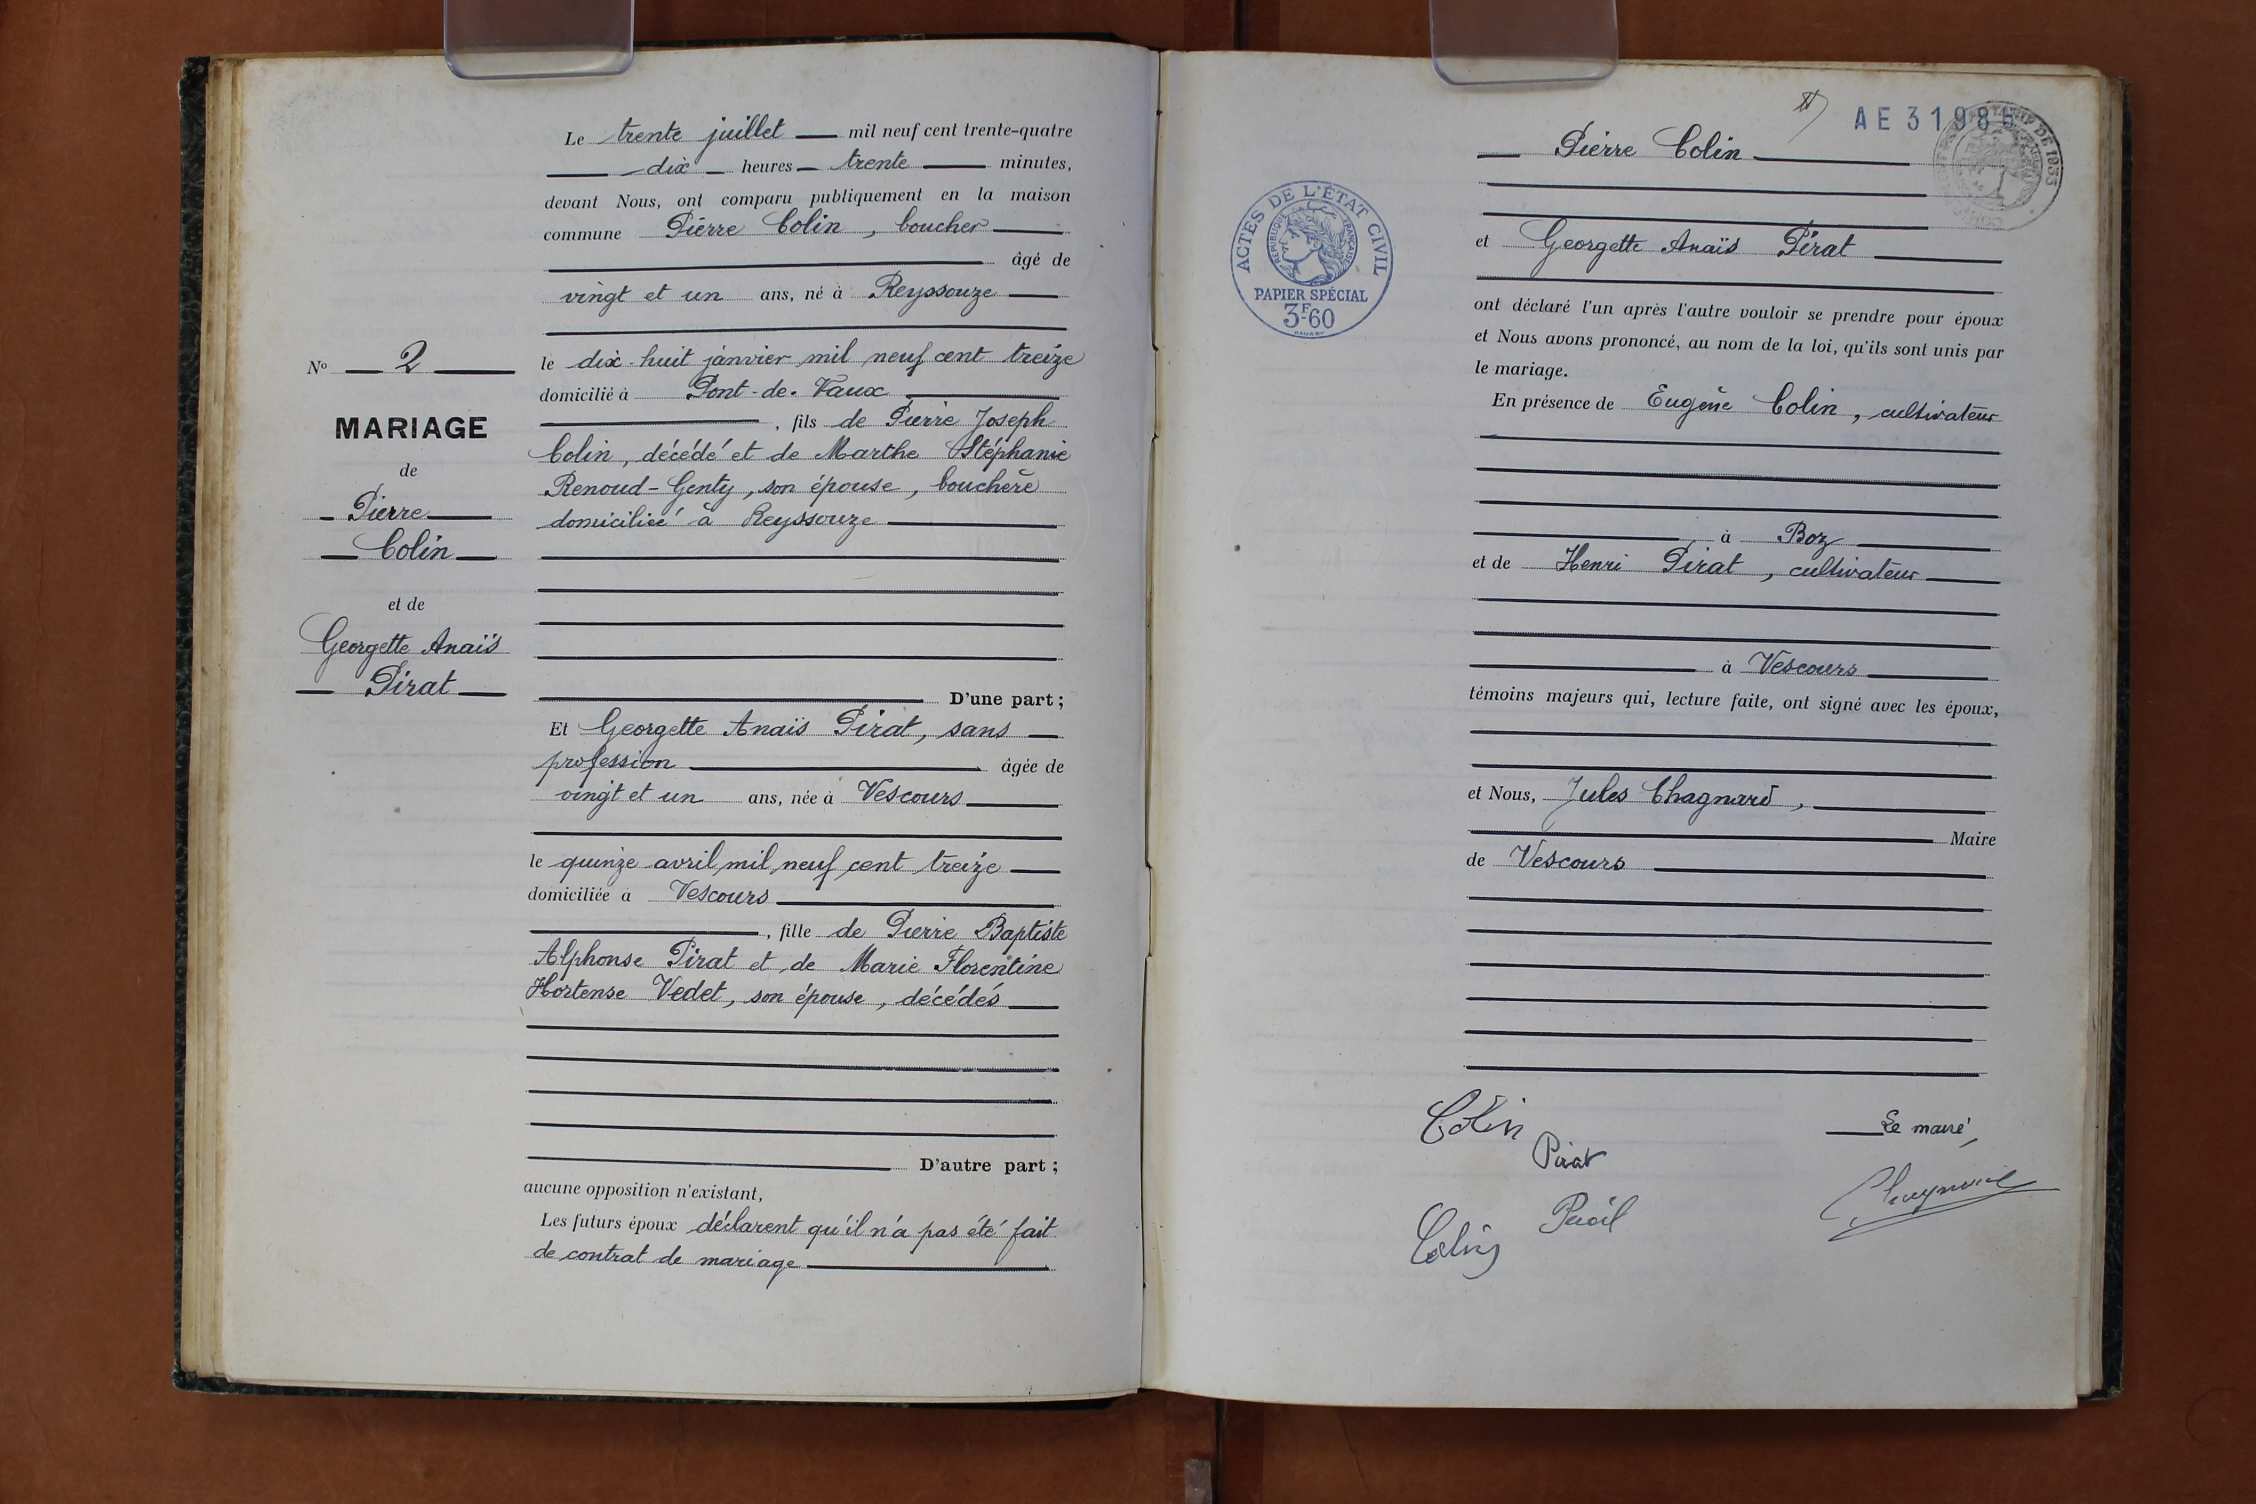 Le trente juillet mil neuf cent trente-quatre
dix heures trente minutes,
devant Nous, ont comparu publiquement en la maison
commune Pierre Colin, boucher
âgé de
vingt et un ans, né à Reyssouze
le dix-huit janvier mil neuf cent treize
domicilié à Pont-de-Vaux
, fils de Pierre Joseph
Colin, décédé et de Marthe Stéphanie
Renoud-Genty, son épouse, bouchère
domiciliée à Reyssouze
D'une part ;
Et Georgette Anaïs Pirat, sans
profession âgée de
vingt et un ans, née à Vescours
le quinze avril mil neuf cent treize
domiciliée à Vescours
, fille de Pierre Baptiste
Alphonse Pirat et de Marie Florentine
Hortense Vedet, son épouse, décédés
D'autre part ;
aucune opposition n'existant,
Les futurs époux déclarent qu'il n'a pas été fait
de contrat de mariage
N° 2
MARIAGE
de
Pierre
Colin
et de
Georgette Anaïs
Pirat
Pierre Colin
et Georgette Anaïs Pirat
ont déclaré l'un après l'autre vouloir se prendre pour époux
et Nous avons prononcé, au nom de la loi, qu'ils sont unis par
le mariage.
En présence de Eugène Colin, cultivateur
à Boz
et de Henri Pirat, cultivateur
à Vescours
témoins majeurs qui, lecture faite, ont signé avec les époux,
et Nous, Jules Chagnard,
Maire
de Vescours
Colin
Pirat
Le maire,
Colin
Chagnard
ACTES DE L'ÉTAT CIVIL
RÉPUBLIQUE FRANÇAISE
PAPIER SPÉCIAL
3F-60
DE 1933